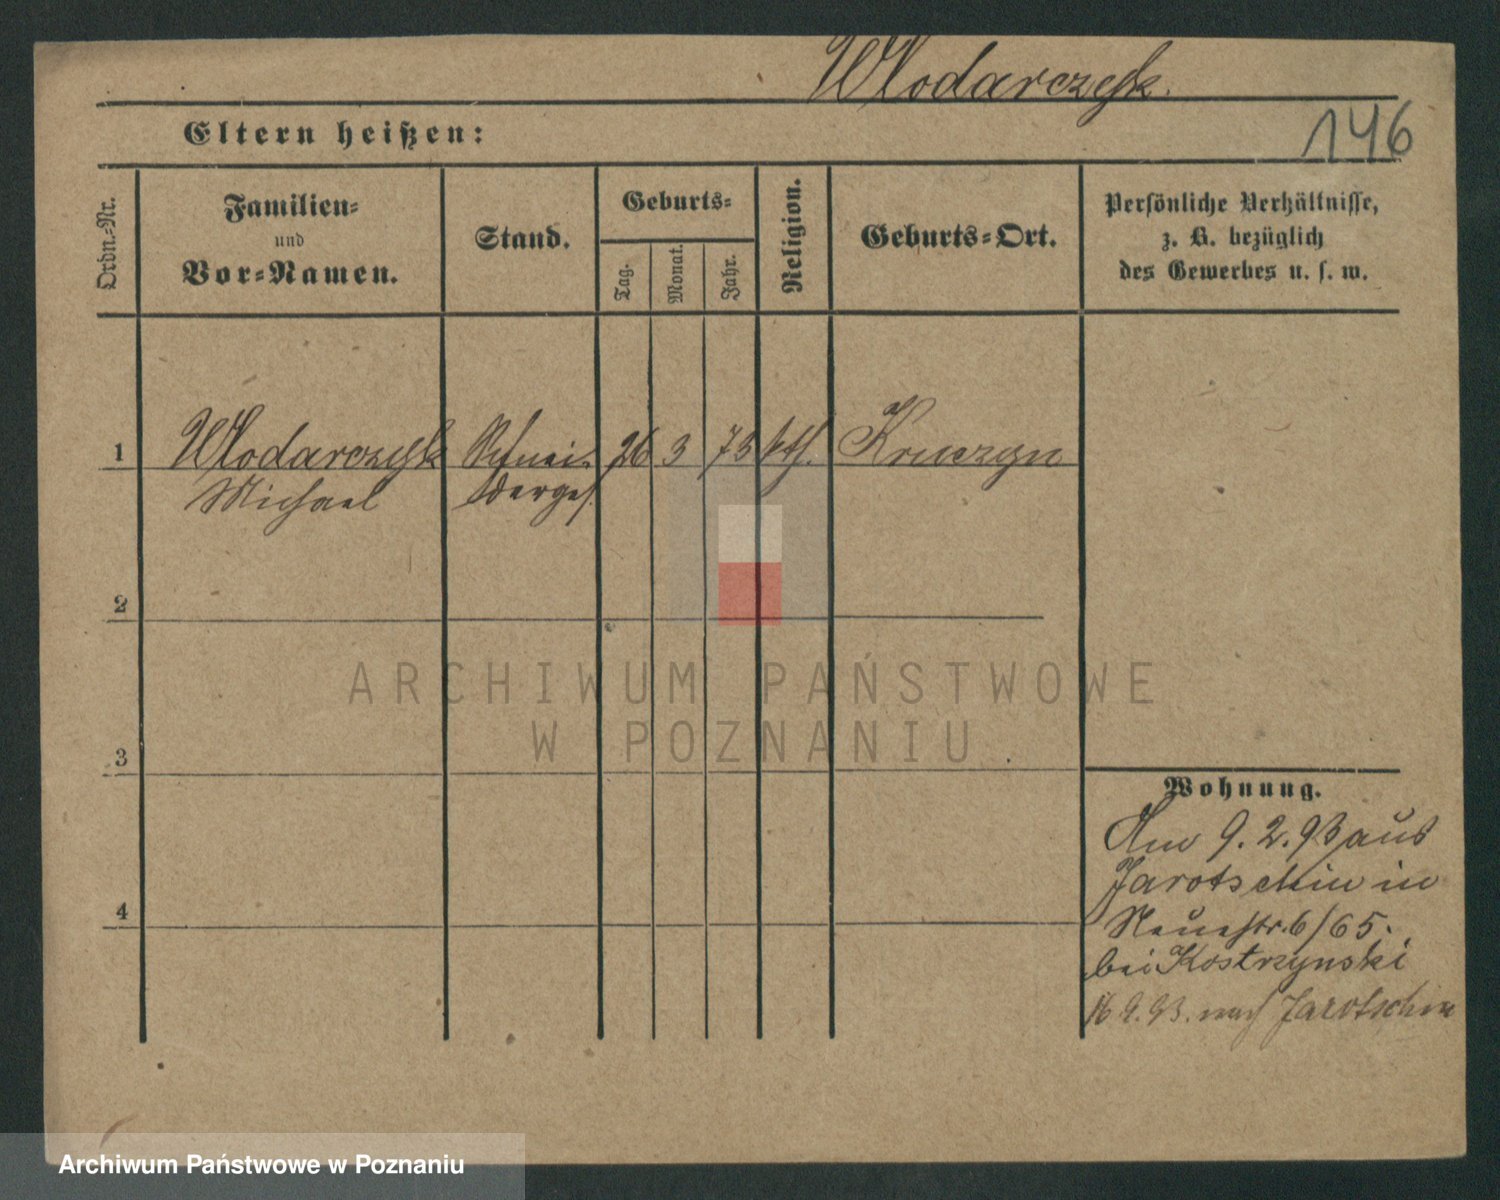 Wlodarczyk.
146
Eltern heißen:
Ordn.-Nr.
Familien-
und
Vor-Namen.
Stand.
Geburts-
Tag.
Monat.
Jahr.
Religion.
Geburts-Ort.
Persönliche Verhältnisse,
z. B. bezüglich
des Gewerbes u. s. w.
1 Wlodarczyk Schnei- 26 3 73 kth. Kruczyn
Michael derges.
2
3
4
Wohnung.
Am 9. 2. 93 aus
Jarotschin in
Neuestr. 6/65.
bei Kostrzynski
16.9.93. nach Jarotschin
ARCHIWUM PAŃSTWOWE
W POZNANIU
Archiwum Państwowe w Poznaniu